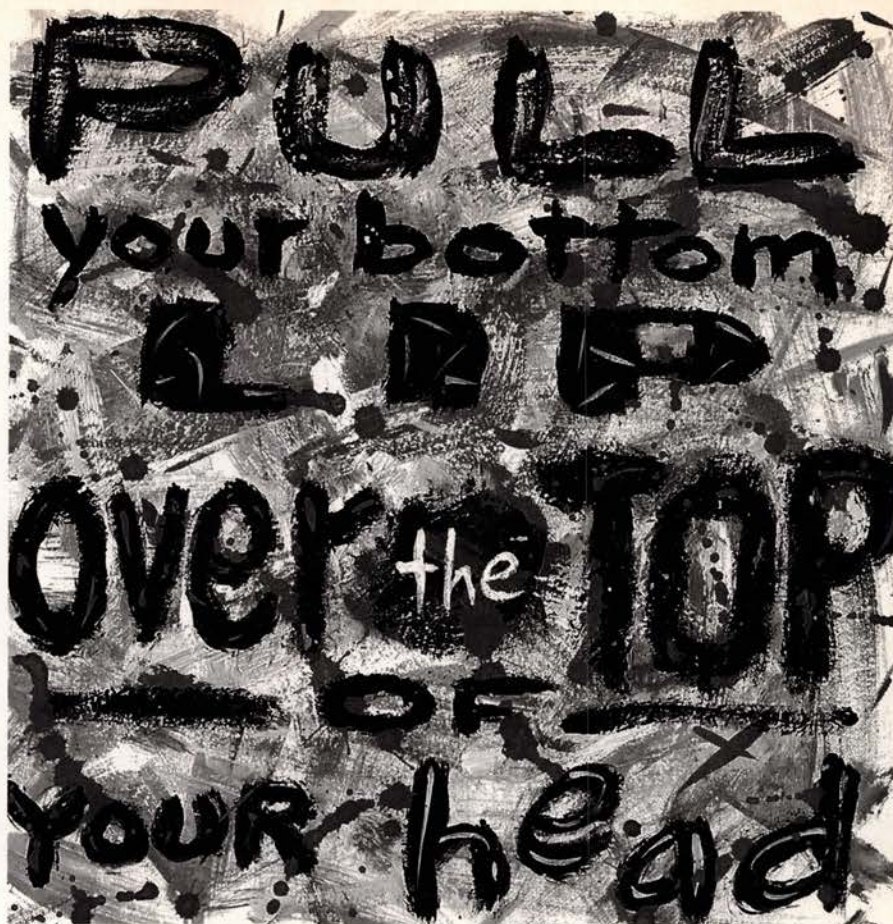 PULL
your bottom
LIP
over the TOP
OF
YOUR head